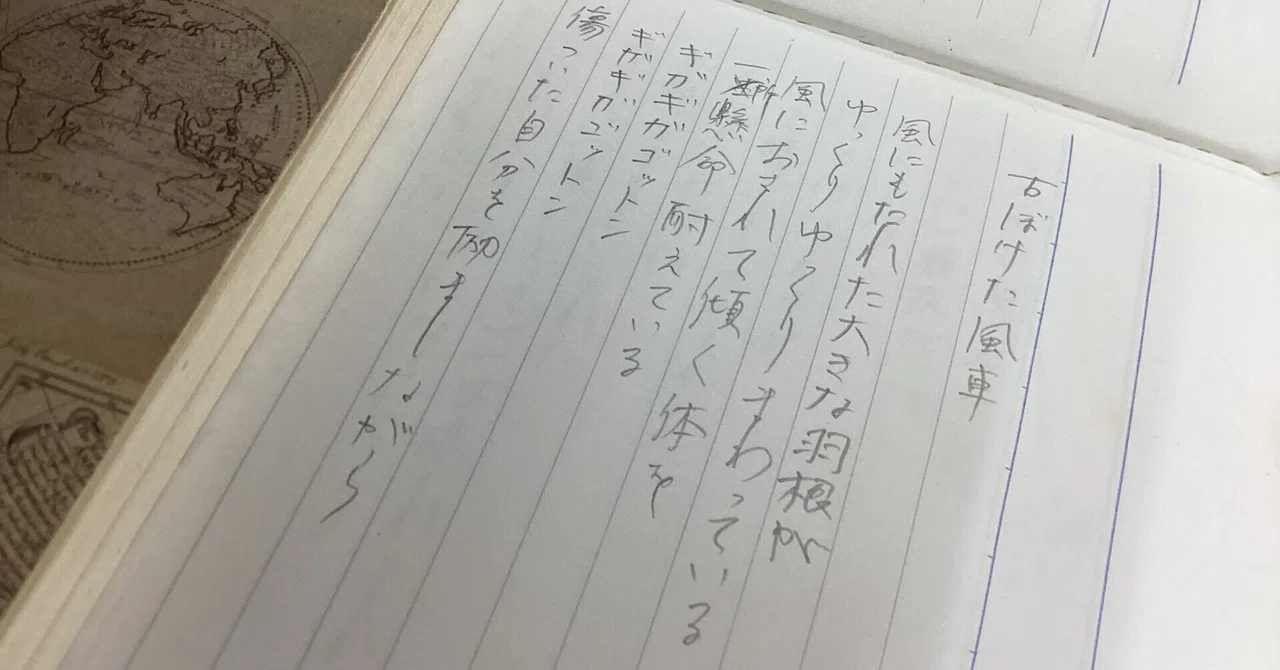 古ぼけた風車
風にもたれた大きな羽根が
ゆっくりゆっくりまわっている
風におされて傾く体を
一懸命耐えている
ギガギガゴットン
ギガギガゴットン
傷ついた自分を励ましながら